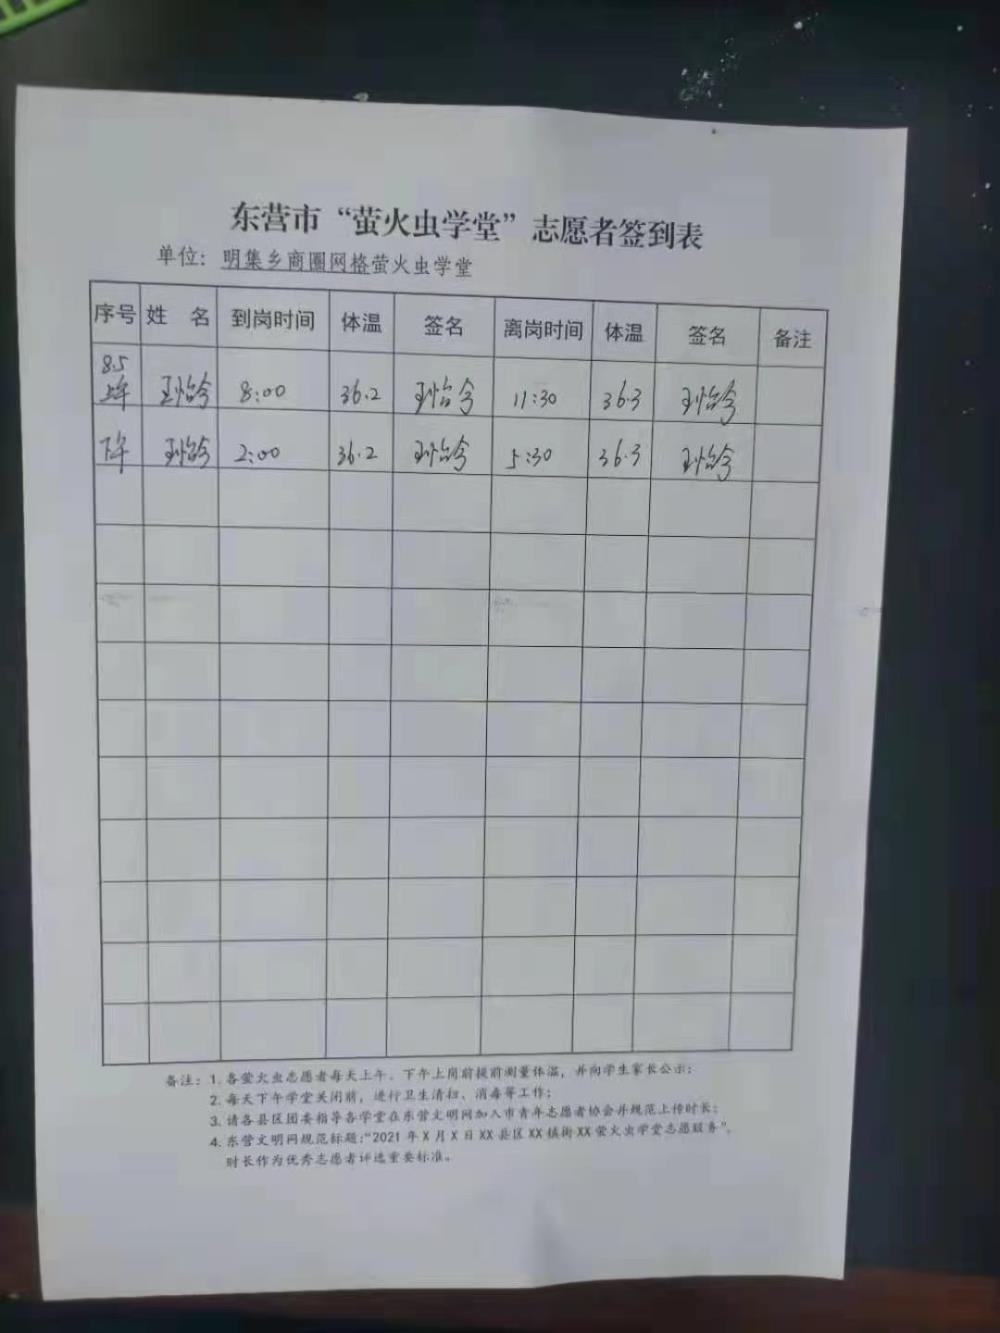 东营市“萤火虫学堂”志愿者签到表
单位：明集乡商圈网格萤火虫学堂
序号 姓 名 到岗时间 体温 签名 离岗时间 体温 签名 备注
8.5
上午 王怡今 8:00 36.2 王怡今 11:30 36.3 王怡今
下午 王怡今 2:00 36.2 王怡今 5:30 36.3 王怡今
备注：1. 各萤火虫志愿者每天上午、下午上岗前提前测量体温，并向学生家长公示；
2. 每天下午学堂关闭前，进行卫生清扫、消毒等工作；
3. 请各县区团委指导各学堂在东营文明网加入市青年志愿者协会并规范上传时长；
4. 东营文明网规范标题：“2021 年 X 月 X 日 XX 县区 XX 镇街 XX 萤火虫学堂志愿服务”，
时长作为优秀志愿者评选重要标准。